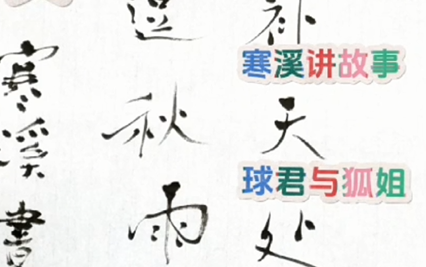 补天处
逗秋雨
寒溪書
寒溪讲故事
球君与狐姐